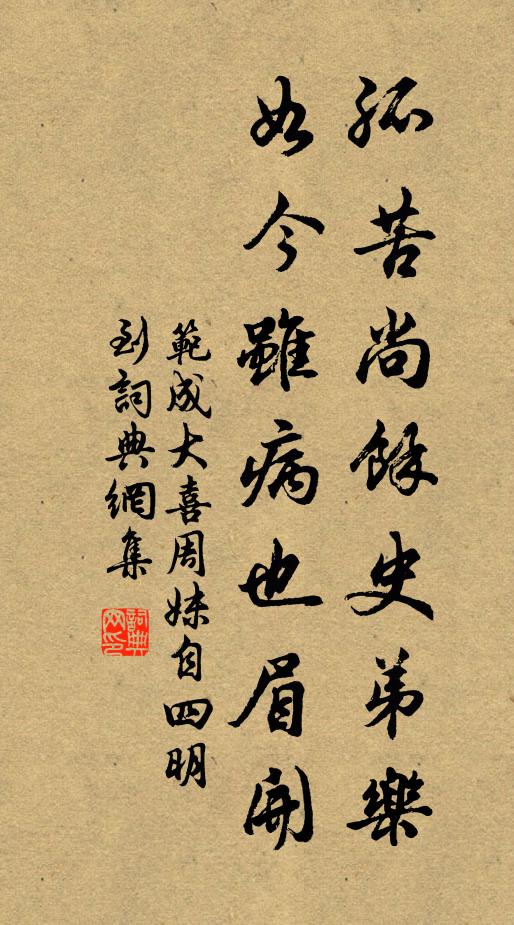 孤苦尚餘史弟樂
如今雖病也眉開
範成大喜周妹自四明
到詞典網集
詞典网印